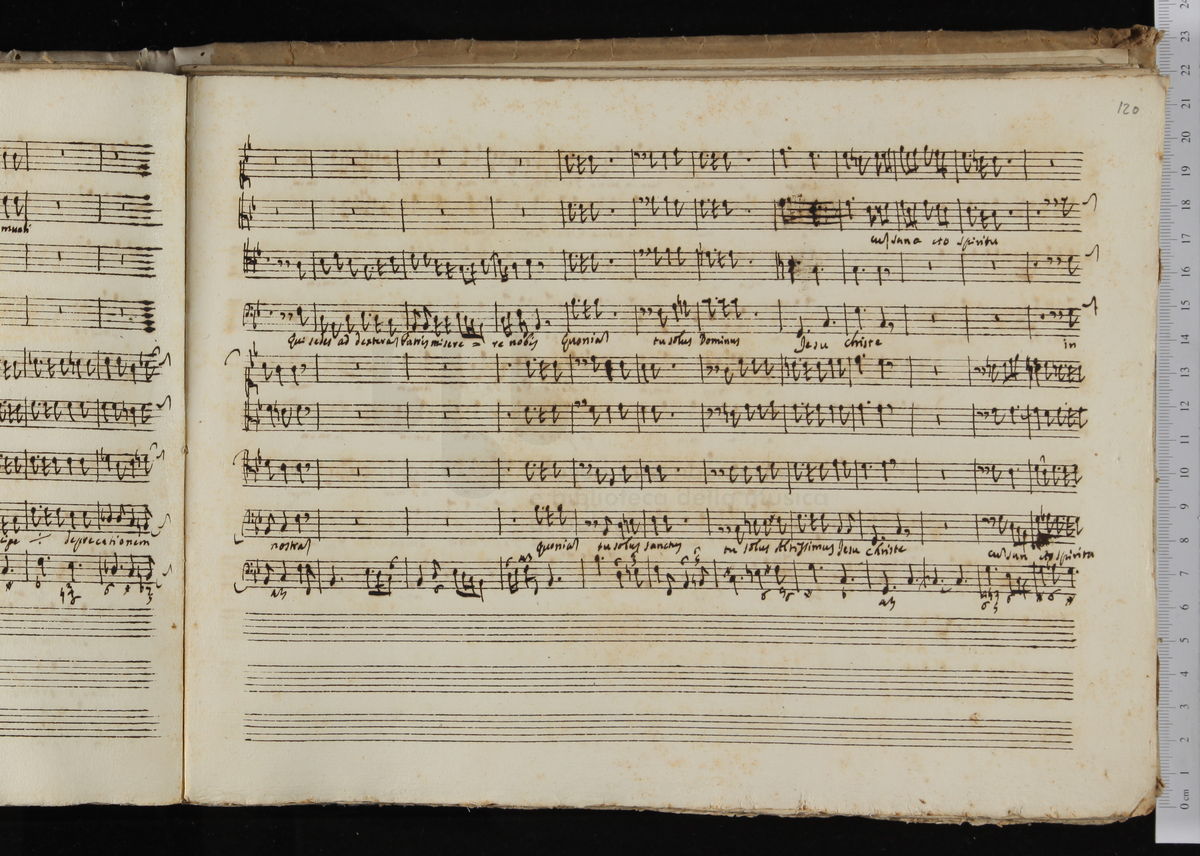 120
muati
cu[m] sancto spiritu
Qui sedes ad dextera[m] Patris misere = re nobis Quonia[m] tu solus Dominus Jesu Christe in
deprecationem
nostra[m] quonia[m] tu solus sanctus tu solus Altissimus Jesu Christe cu[m] sancto spiritu
e biblioteca della musica
0 cm 1 2 3 4 5 6 7 8 9 10 11 12 13 14 15 16 17 18 19 20 21 22 23 24